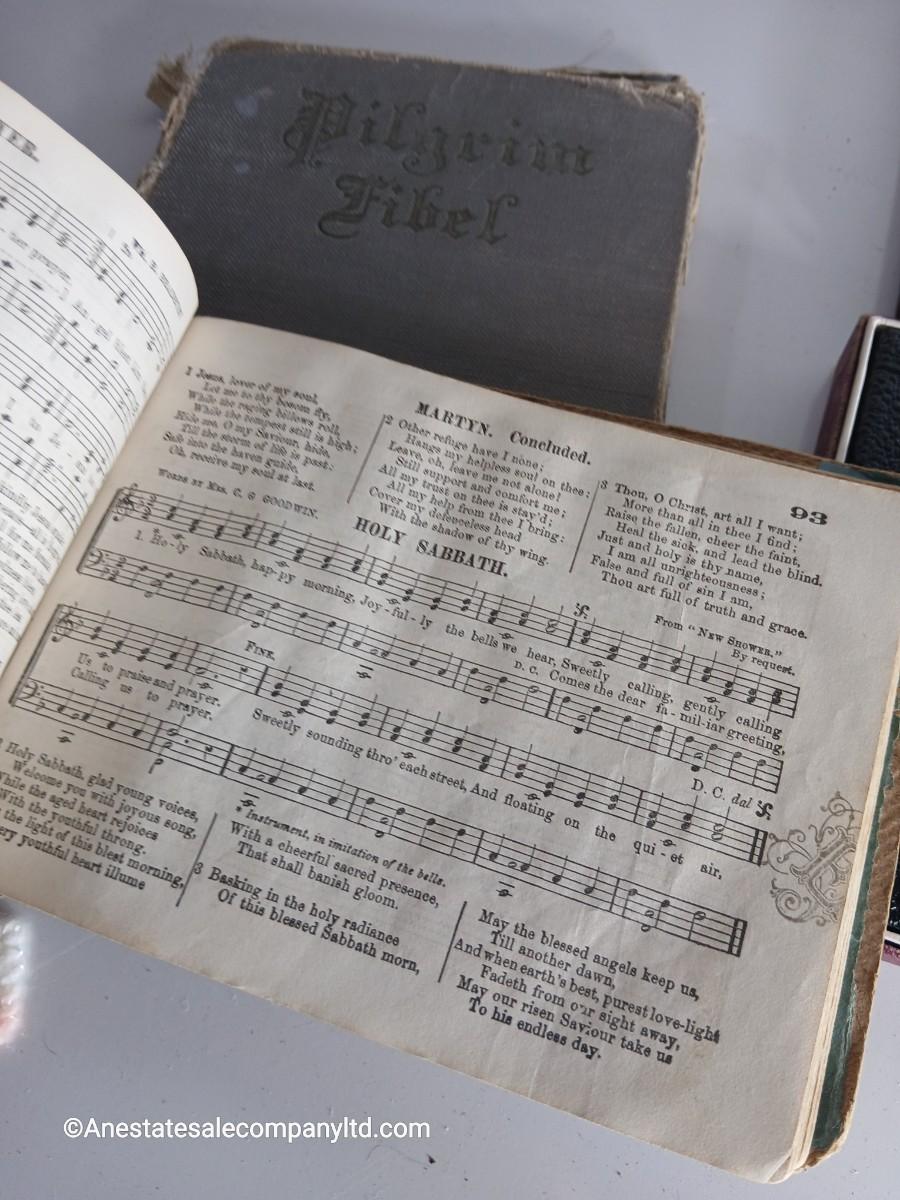 Pilgrim
Fibel
93
MARTYN. Concluded.
1 Jesus, lover of my soul,
Let me to thy bosom fly,
While the raging billows roll,
While the tempest still is high;
Hide me, O my Saviour, hide,
Till the storm of life is past:
Safe into the haven guide,
Oh, receive my soul at last.
2 Other refuge have I none;
Hangs my helpless soul on thee;
Leave, oh, leave me not alone!
Still support and comfort me;
All my trust on thee is stay'd;
All my help from thee I bring:
Cover my defenceless head
With the shadow of thy wing.
3 Thou, O Christ, art all I want;
More than all in thee I find;
Raise the fallen, cheer the faint,
Heal the sick, and lead the blind.
Just and holy is thy name,
I am all unrighteousness;
False and full of sin I am,
Thou art full of truth and grace.
WORDS BY MRS. C. G GOODWIN.
HOLY SABBATH.
From "NEW SHOWER,"
By request.
1. Ho-ly Sabbath, hap-py morning, Joy-ful-ly the bells we hear, Sweetly calling, gently calling
D. C. Comes the dear fa-mil-iar greeting,
FINE.
D. C. dal
Us to praise and prayer. Sweetly sounding thro' each street, And floating on the qui-et air,
Calling us to prayer.
* Instrument, in imitation of the bells.
2 Holy Sabbath, glad young voices,
Welcome you with joyous song,
While the aged heart rejoices
With the youthful throng.
the light of this blest morning,
ery youthful heart illume
With a cheerful sacred presence,
That shall banish gloom.
3 Basking in the holy radiance
Of this blessed Sabbath morn,
May the blessed angels keep us,
Till another dawn,
And when earth's best, purest love-light
Fadeth from our sight away,
May our risen Saviour take us
To his endless day.
©Anestatesalecompanyltd.com